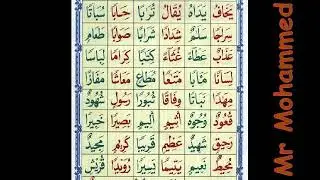 يَخَافُ يَدَاهُ يُقَالُ تُرَابًا حِسَابًا سُبَاتًا
سِرَاجًا سَلَامٌ شِدَادًا شَرَابًا صَوَابًا طَعَامٌ
عَذَابٌ عَطَاءً غُثَاءً كِتَابٌ كِرَامًا لِبَاسًا
لِسَانًا مَآبًا مَتَاعًا مُطَاعٍ مَعَاشًا مَفَازًا
مِهَادًا نَبَاتًا وِفَاقًا ثُبُورًا رَسُولٌ شُهُودٌ
قُعُودٌ وُجُوهٌ أَثِيمٍ أَلِيمٍ بَصِيرًا خَبِيرًا
رَحِيقٍ شَهِيدٌ عَظِيمٌ قَرِيبًا كَرِيمٌ مَجِيدٌ
مُحِيطٌ نَعِيمٍ يَتِيمًا يَسِيرًا رُوَيْدًا قُرَيْشٍ
Mr Mohammed